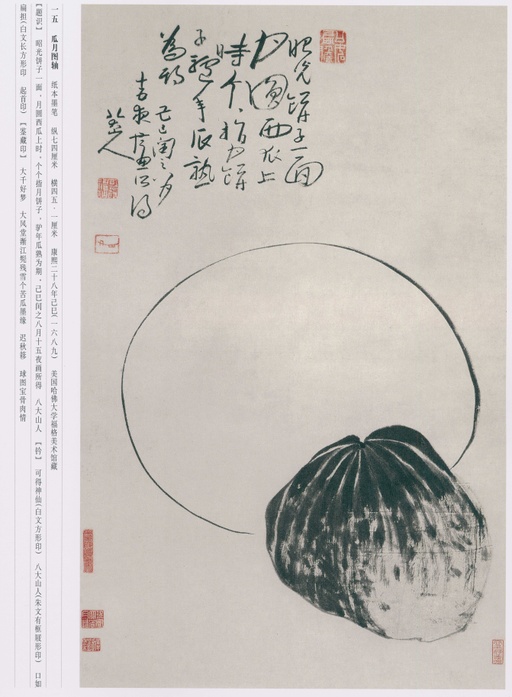 昭光餅子一面
月圓西瓜上
時个个指月餅
子驢年瓜熟
為期
己巳閏之八月
十五夜畫所得
八大山人
一五 瓜月图轴 纸本墨笔 纵七四厘米 横四五·一厘米 康熙二十八年己巳(一六八九) 美国哈佛大学福格美术馆藏
【题识】 昭光饼子一面,月圆西瓜上时,个个指月饼子,驴年瓜熟为期,己巳闰之八月十五夜画所得 八大山人 【钤】 可得神仙(白文方形印) 八大山人(朱文有框屐形印) 口如
扁担(白文长方形印 起首印) 【鉴藏印】 大千好梦 大风堂渐江髡残雪个苦瓜墨缘 迟秋簃 球图宝骨肉情